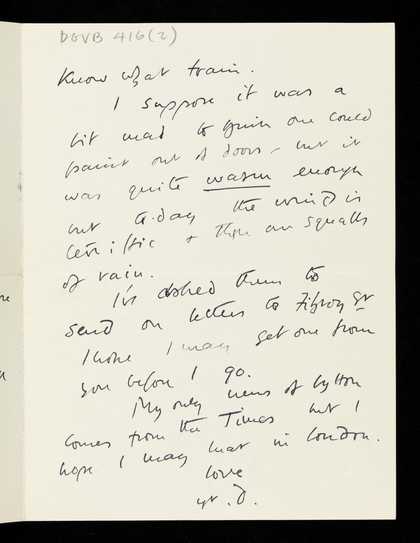 DGVB 416(2)
know what train.
I suppose it was a
bit mad to think one could
paint out of doors – but it
was quite warm enough
but to-day the wind is
terrific + there are squalls
of rain.
I've asked them to
send on letters to Fitzroy St
I hope I may get one from
you before I go.
My only news of Lytton
comes from the Times but I
hope I may hear in London.
love
yr. D.